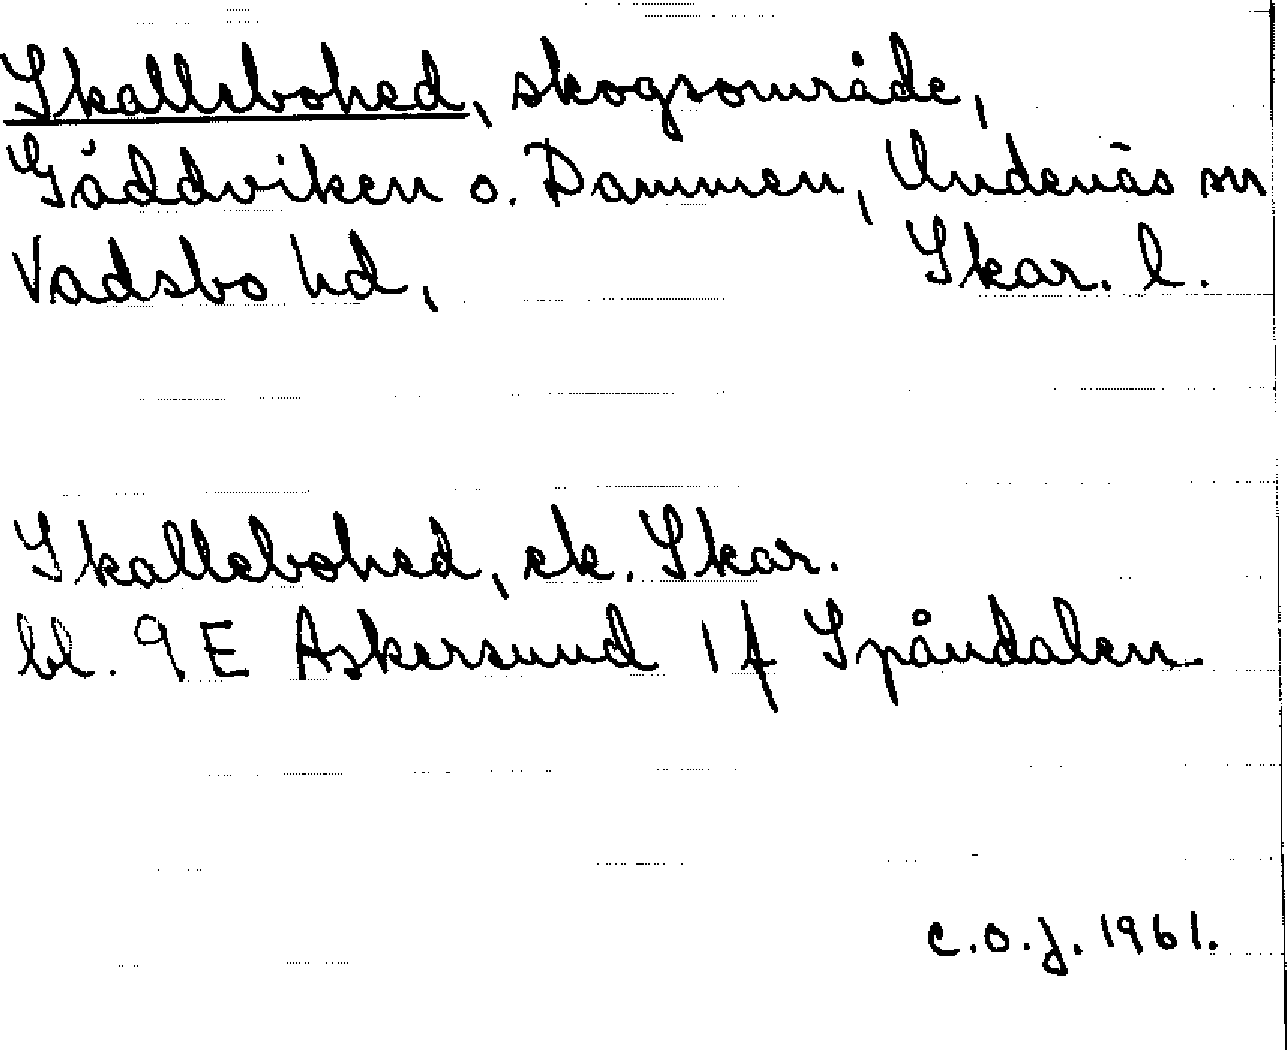 Skallebohed, skogsområde,
Gäddviken o. Dammen, Undenäs sn
Vadsbo hd, Skar. l.
Skallebohed, ek. Skar.
bl. 9 E Askersund 1 f Spåndalen
C.O.J. 1961.